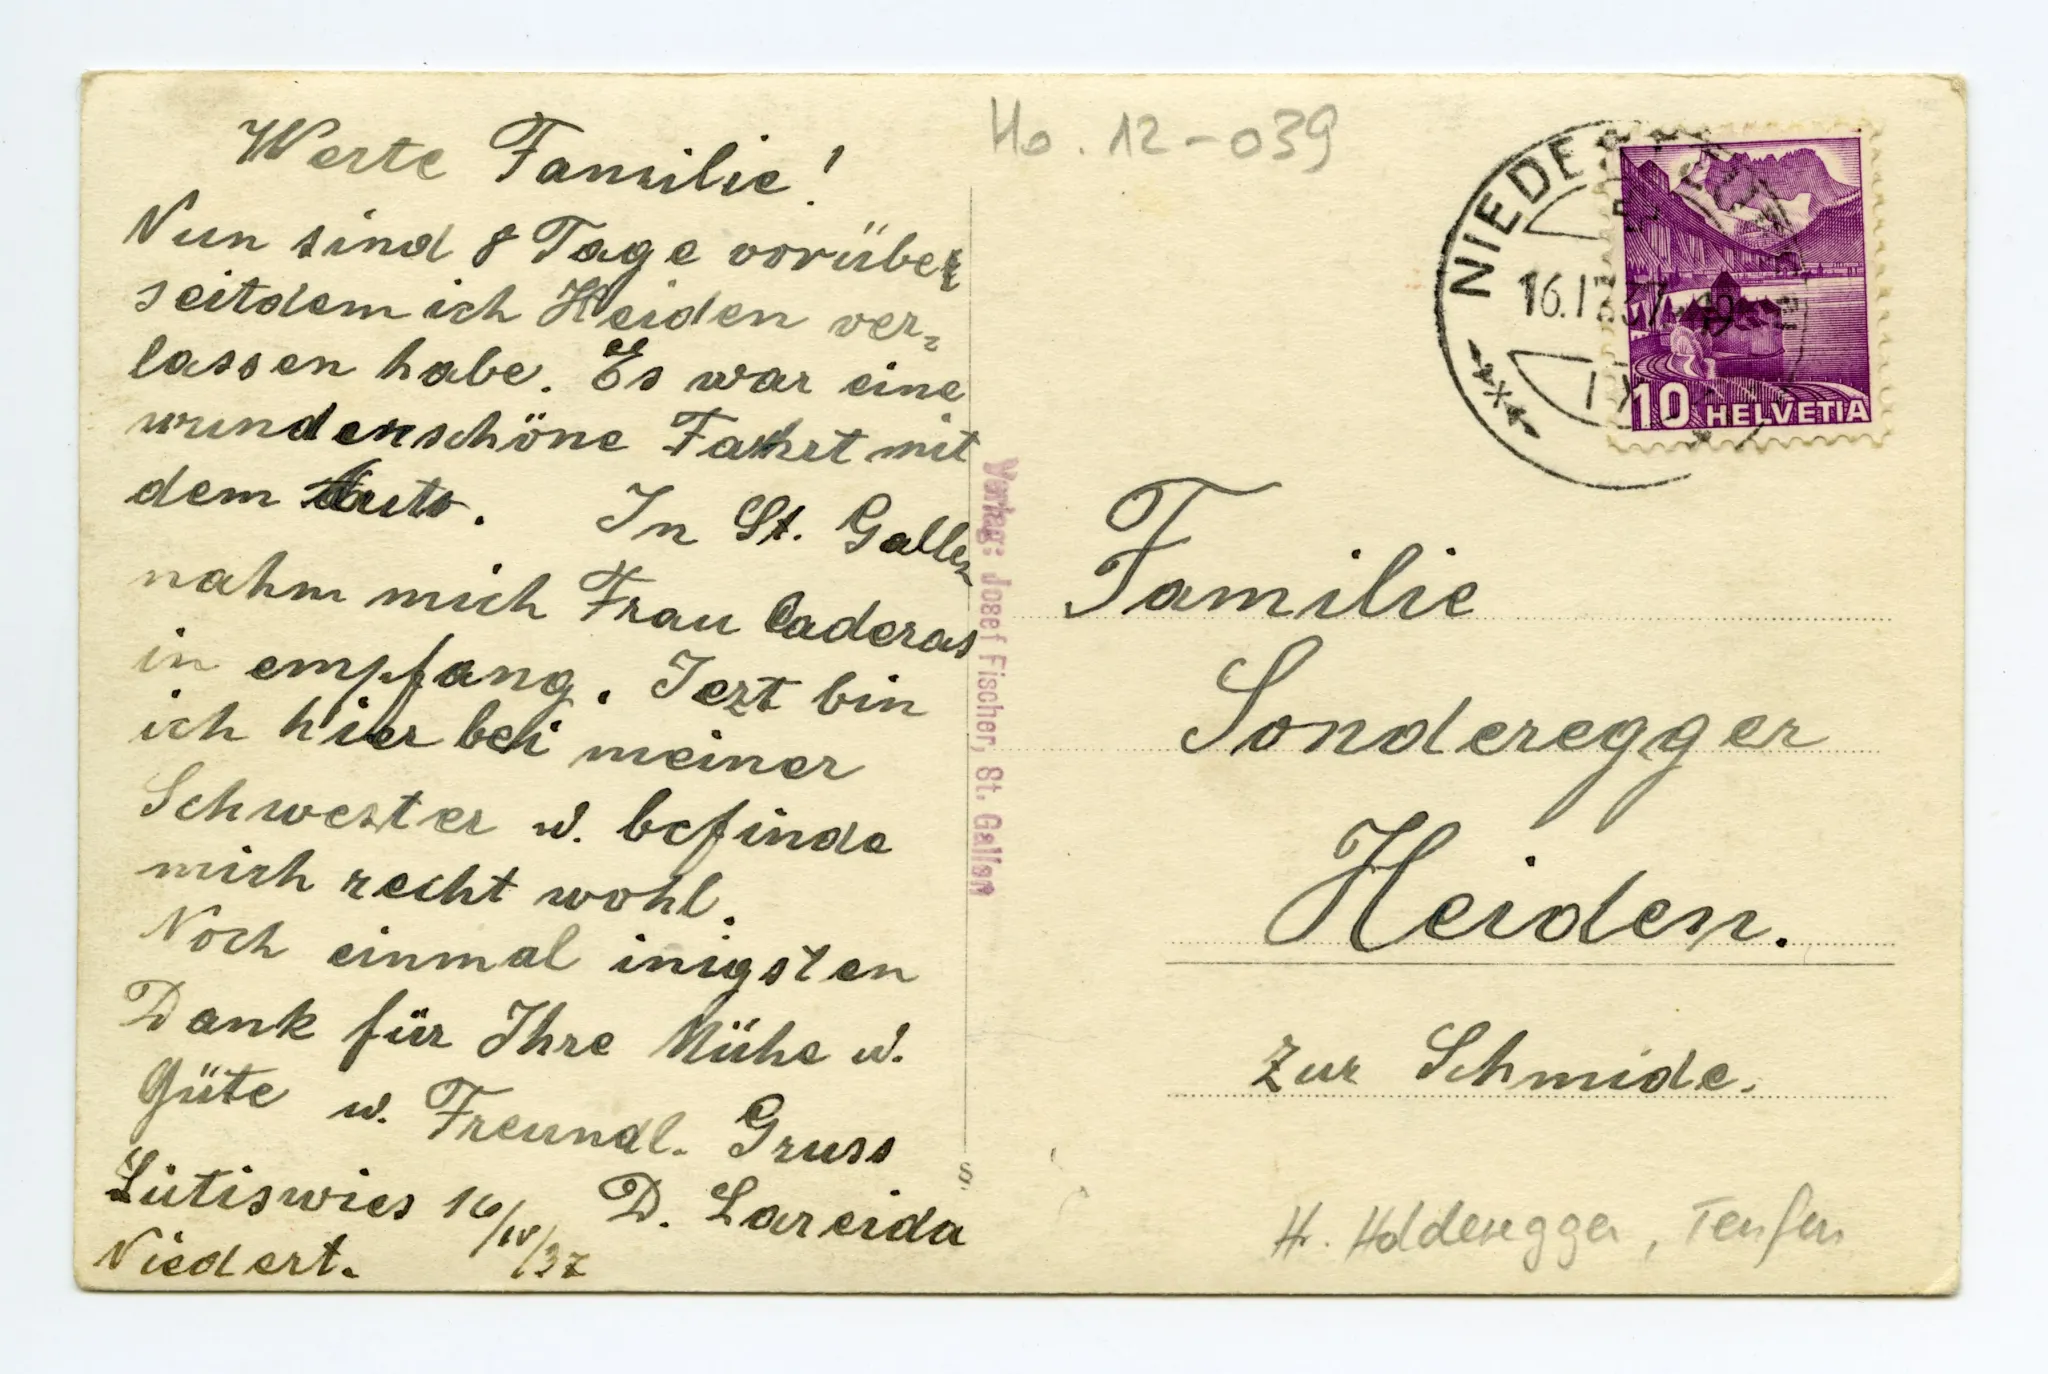 Werte Familie!
Nun sind 8 Tage vorüber
seitdem ich Heiden ver=
lassen habe. Es war eine
wunderschöne Fahrt mit
dem Auto. In St. Gallen
nahm mich Frau Caderas
in empfang. Jezt bin
ich hier bei meiner
Schwester u. befinde
mich recht wohl.
Noch einmal inigsten
Dank für Ihre Mühe u.
Güte u. Freundl. Gruss
Lütiswies 16/IV/37 D. Lareida
Niedert.
Verlag: Josef Fischer, St. Gallen
S
Ho. 12-039
NIEDE
16.IV.37
10 HELVETIA
Familie
Sonderegger
Heiden.
Zur Schmide.
H. Holderegger, Teufen